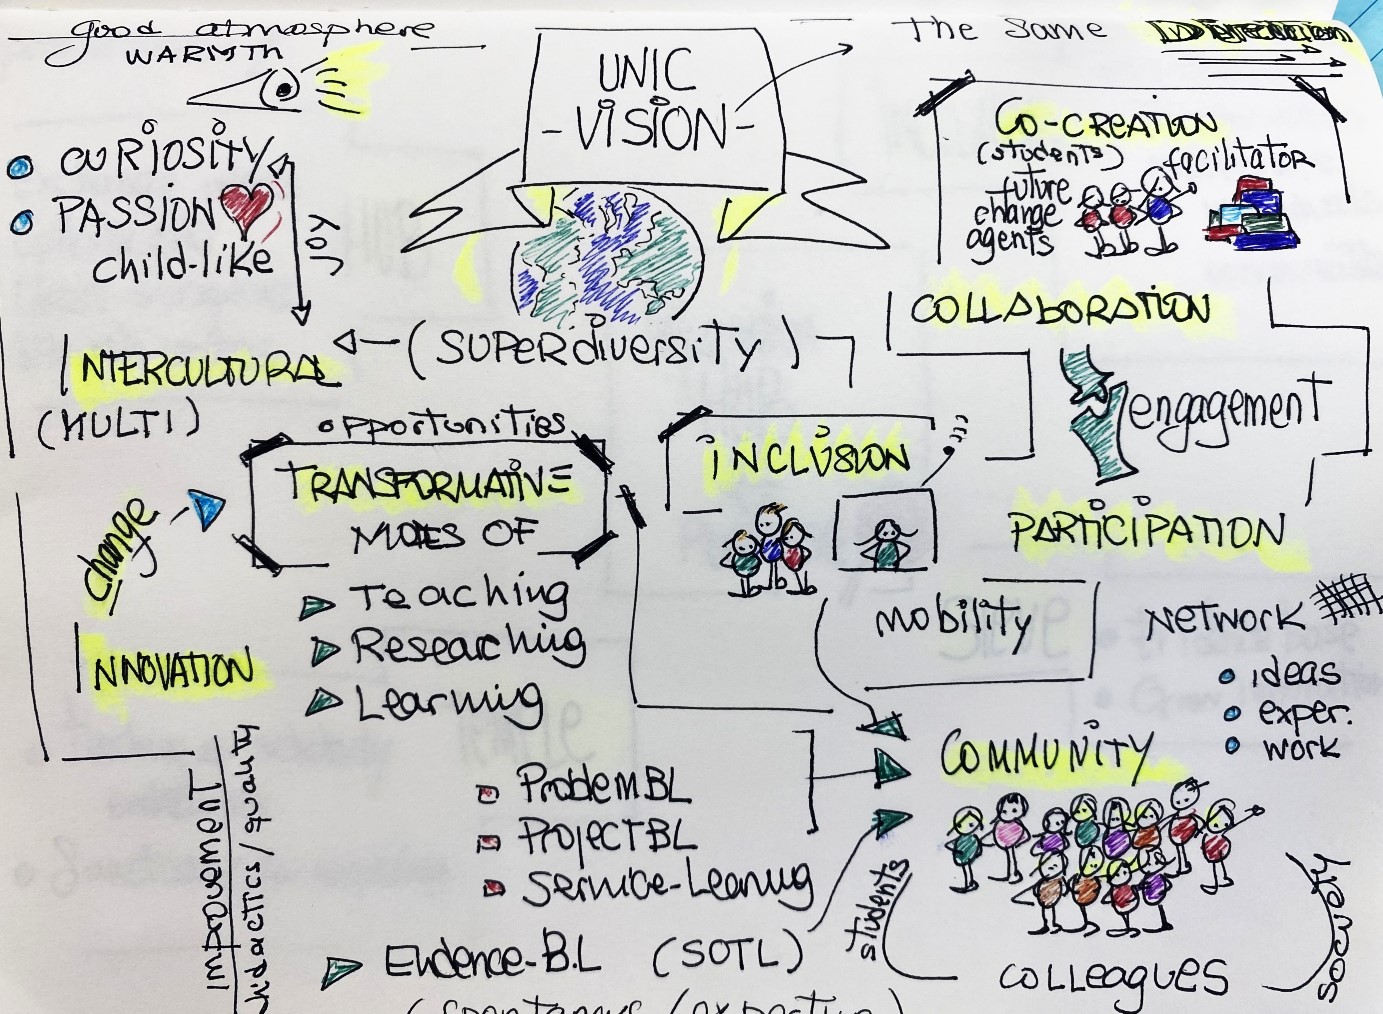 good atmosphere
WARMTH
CURIOSITY
PASSION
child-like
JOY
UNIC
- VISION -
The Same Direction
CO-CREATION
(students) facilitator
future
change
agents
COLLABORATION
engagement
(SUPERdiversity)
INTERCULTURAL
(MULTI)
opportunities
TRANSFORMATIVE
MODES OF
Teaching
Researching
Learning
change
INNOVATION
Improvement
didactics / quality
INCLUSION
PARTICIPATION
mobility
NETWORK
ideas
exper.
work
COMMUNITY
ProblemBL
ProjectBL
Service-Learning
Evidence-B.L (SOTL)
students
COLLEAGUES
society